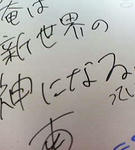 俺は
新世界の
神になる。